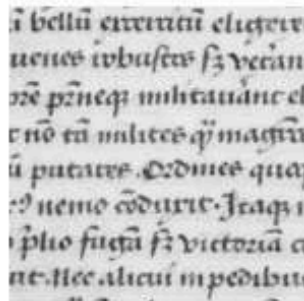 ū bellū exercitū eligere
uenes robustos sʒ veteran
prē prīneqʒ militauānt el
t nō tā milites q̄ʒ magistr
ū putares. Ordines quo
nemo cōduxit. Itaqʒ n
o p̄lio fugā sʒ victoriā c
uit. Nec alicui in pedibu